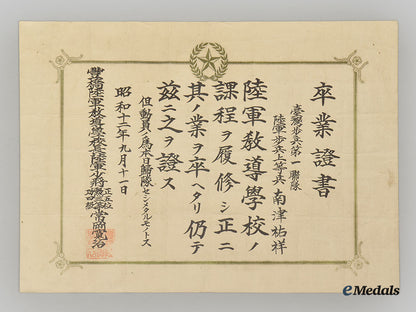 卒業證書
臺灣步兵第一聯隊
陸軍步兵上等兵 南津祐祥
陸軍教導學校ノ
課程ヲ履修シ正ニ
其ノ業ヲ卒ヘタリ仍テ
茲ニ之ヲ證ス
但動員ノ爲本日歸隊セシメタルモノトス
昭和十二年九月十一日
豐橋陸軍教導學校長陸軍少將
常岡寬治
eMedals